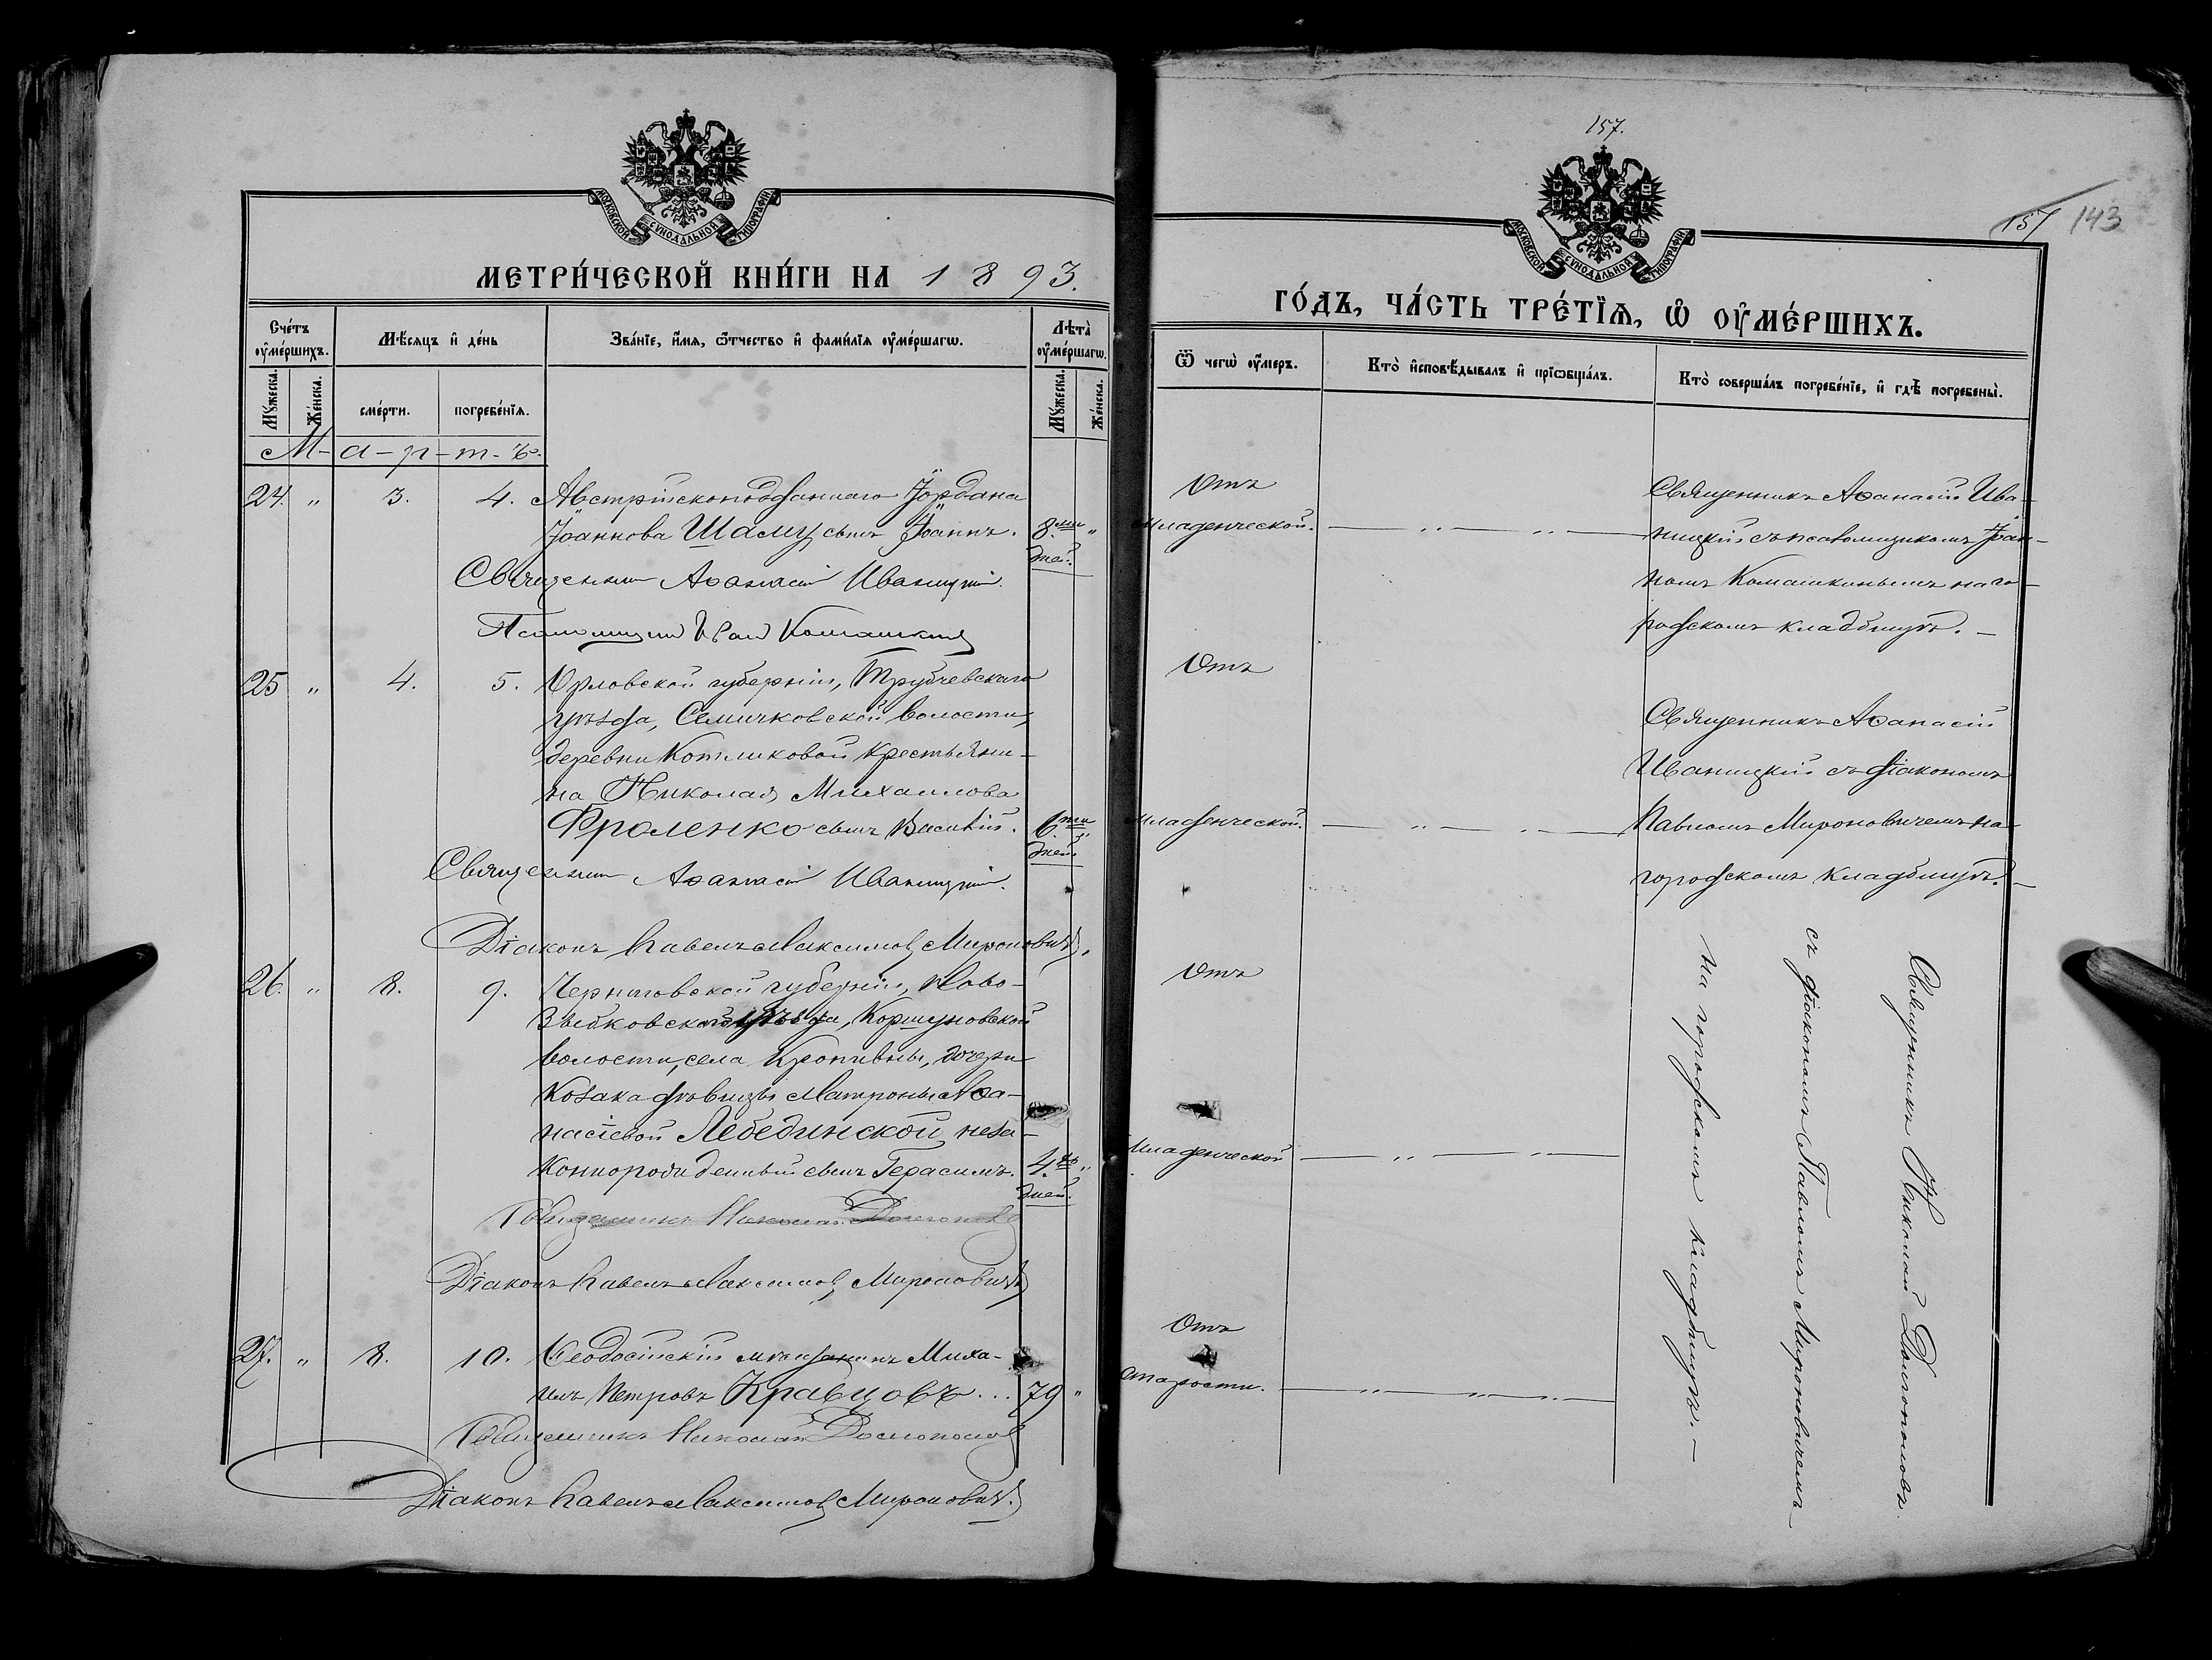 МОСКОВСКОЙ СѴНОДАЛЬНОЙ ТИПОГРАФІИ
МЕТРИ́ЧЕСКОЙ КНИ́ГИ НА 1893.
Сче́тъ оу҆ме́ршихъ.
Мѣ́сяцъ и҆ де́нь
Зва́нїе, и҆́мя, ѻ҆́тчество и҆ фами́лїя оу҆ме́ршагѡ.
Лѣта̀ оу҆ме́ршагѡ.
Мꙋ́жеска.
Же́нска.
сме́рти.
погребе́нїѧ.
Мꙋ́жеска.
Же́нска.
М-а-р-т-ъ.
24. " 3. 4. Австрійскоподданнаго Іордана
Іоаннова Шаму, сынъ Іоаннъ. 8.ми "
дней.
Священник Аѳанасій Иваницкій.
Псаломщик Иван Комашкин
25 " 4. 5. Орловской губерніи, Трубчевскаго
уѣзда, Семичковской волости,
деревни Котликовой крестьяни-
на Николая Михаилова
Фроленко сынъ Василій. 6.ти "
дней.
Священник Аѳанасій Иваницкій.
Діаконъ Павелъ Максимов Мироновичъ.
26. " 8. 9. Черниговской губерніи, Ново-
Зыбковскаго уѣзда, Коршуновской
волости, села Кропивны, дочери
козака дѣвицы Матроны Аѳа-
насіевой Лебединской, неза-
коннорожденный сынъ Герасимъ. 4.хъ "
дней.
Священникъ Николай Долгополов
Діаконъ Павелъ Максимов Мироновичъ
27. " 8. 10. Ѳеодосійскій мѣщанинъ Миха-
илъ Петровъ Кравцовъ... 79 "
Священникъ Николай Долгополов
Діаконъ Павелъ Максимов Мироновичъ.
157.
МОСКОВСКОЙ СѴНОДАЛЬНОЙ ТИПОГРАФІИ
157 143
ГО́ДЪ, ЧА́СТЬ ТРЕ́ТЇѦ, Ѡ҆ ОУ҆МЕ́РШИХЪ.
Ѿ чегѡ̀ оу҆́меръ.
Кто̀ и҆сповѣ́дывалъ и҆ прїѡбща́лъ.
Кто̀ соверша́лъ погребе́нїе, и҆ гдѣ̀ погребены̀.
Отъ
младенческой.
Священникъ Аѳанасій Ива-
ницкій съ псаломщикомъ Іоан-
номъ Комашкинымъ на го-
родскомъ кладбищѣ.-
Отъ
младенческой.
Священникъ Аѳанасій
Иваницкій съ діакономъ
Павломъ Мироновичемъ на
городскомъ кладбищѣ.-
Отъ
младенческой
Отъ
старости.
Священникъ Николай Долгополовъ
съ діакономъ Павломъ Мироновичемъ
на городскомъ кладбищѣ.-